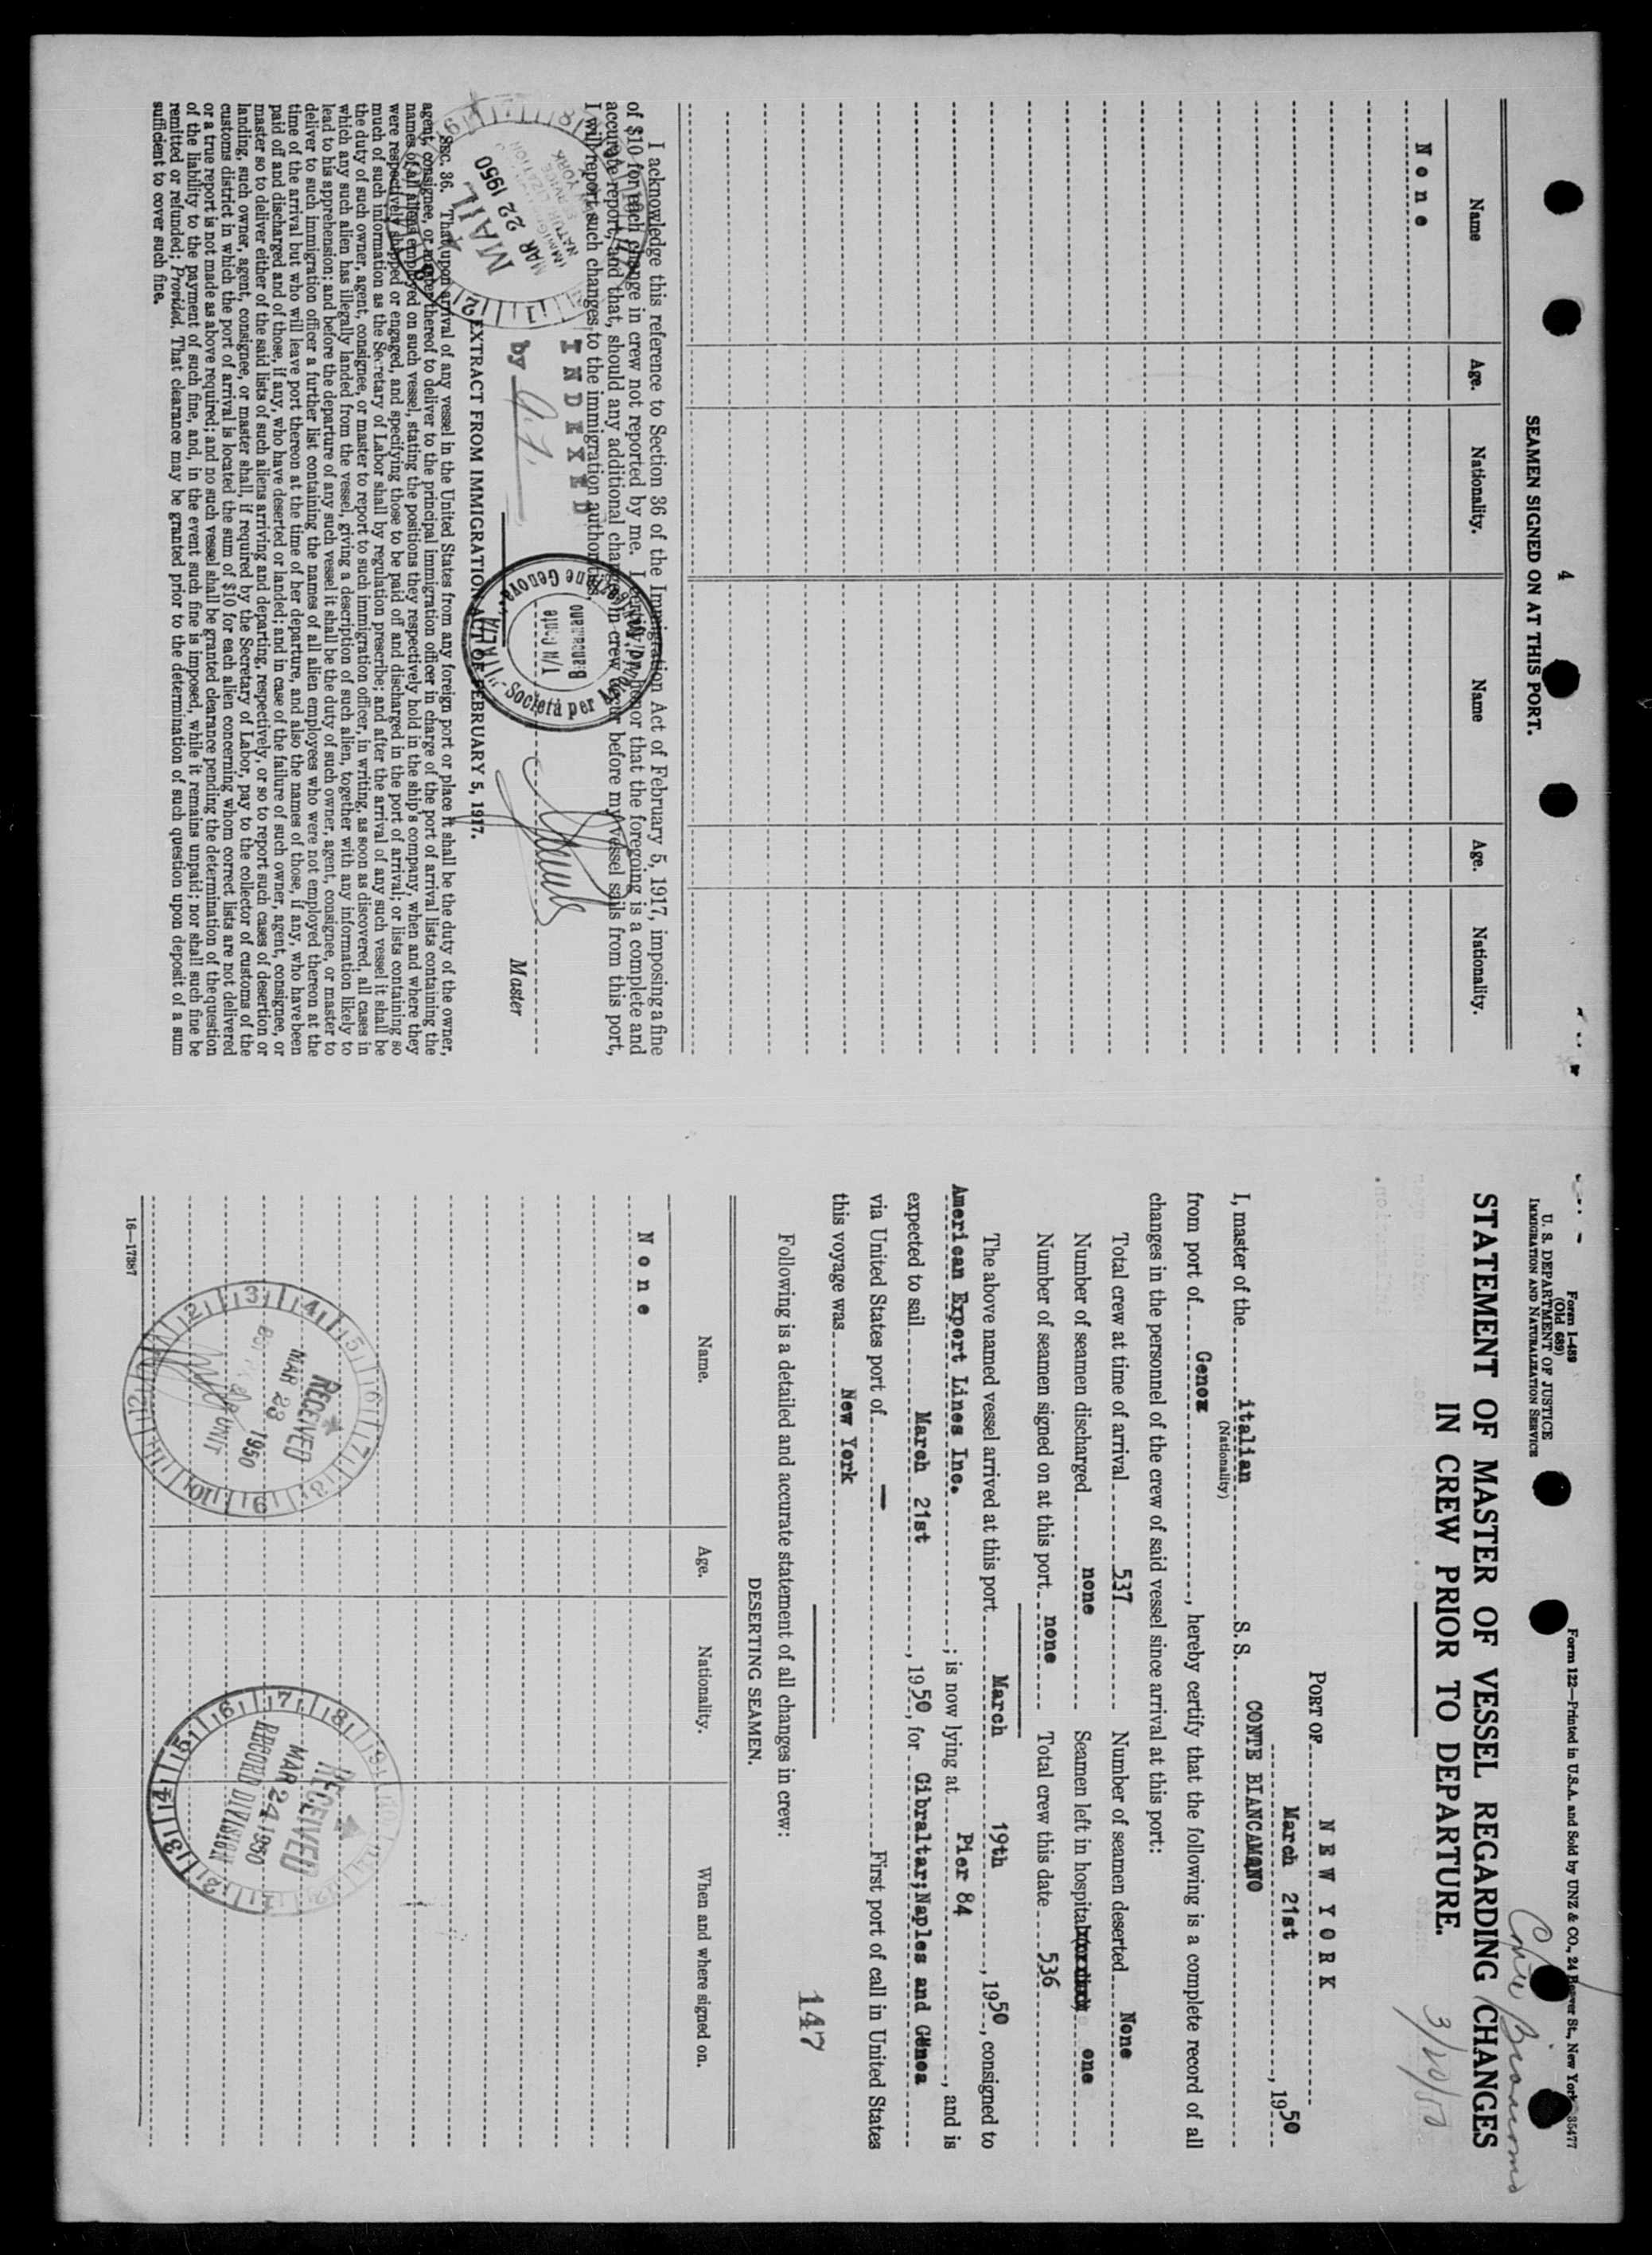 Form I-489
(Old 689)
U. S. DEPARTMENT OF JUSTICE
IMMIGRATION AND NATURALIZATION SERVICE
Form 122—Printed in U.S.A. and Sold by UNZ & CO., 24 Beaver St., New York 35477
Conte Biancamano
3/20/50
STATEMENT OF MASTER OF VESSEL REGARDING CHANGES
IN CREW PRIOR TO DEPARTURE.
PORT OF NEW YORK
March 21st, 1950
I, master of the italian S. S. CONTE BIANCAMANO
(Nationality)
from port of Genoa, hereby certify that the following is a complete record of all
changes in the personnel of the crew of said vessel since arrival at this port:
Total crew at time of arrival 537 Number of seamen deserted None
Number of seamen discharged none Seamen left in hospital one
Number of seamen signed on at this port none Total crew this date 536
The above named vessel arrived at this port March 19th, 1950, consigned to
American Export Lines Inc.; is now lying at Pier 84, and is
expected to sail March 21st, 1950, for Gibraltar; Naples and Genoa
via United States port of — First port of call in United States
this voyage was New York
147
Following is a detailed and accurate statement of all changes in crew:
DESERTING SEAMEN.
Name. Age. Nationality. When and where signed on.
None
RECEIVED
MAR 23 1950
RECEIVED
MAR 24 1950
RECORD DIVISION
16—17387
4
SEAMEN SIGNED ON AT THIS PORT.
Name Age. Nationality. Name Age. Nationality.
None
I acknowledge this reference to Section 36 of the Immigration Act of February 5, 1917, imposing a fine
of $10 for each change in crew not reported by me. I certify on honor that the foregoing is a complete and
accurate report, and that, should any additional changes in crew occur before my vessel sails from this port,
I will report such changes to the immigration authorities.
INDEXED
by
MAIL
MAR 22 1950
IMMIGRATION
NATURALIZATION
SERVICE
NEW YORK
"ITALIA" - Società per Azioni di Navigazione Genova
T/N Conte
Biancamano
Master
EXTRACT FROM IMMIGRATION ACT OF FEBRUARY 5, 1917.
SEC. 36. That upon arrival of any vessel in the United States from any foreign port or place it shall be the duty of the owner,
agent, consignee, or master thereof to deliver to the principal immigration officer in charge of the port of arrival lists containing the
names of all aliens employed on such vessel, stating the positions they respectively hold in the ship's company, when and where they
were respectively shipped or engaged, and specifying those to be paid off and discharged in the port of arrival; or lists containing so
much of such information as the Secretary of Labor shall by regulation prescribe; and after the arrival of any such vessel it shall be
the duty of such owner, agent, consignee, or master to report to such immigration officer, in writing, as soon as discovered, all cases in
which any such alien has illegally landed from the vessel, giving a description of such alien, together with any information likely to
lead to his apprehension; and before the departure of any such vessel it shall be the duty of such owner, agent, consignee, or master to
deliver to such immigration officer a further list containing the names of all alien employees who were not employed thereon at the
time of the arrival but who will leave port thereon at the time of her departure, and also the names of those, if any, who have been
paid off and discharged, and of those, if any, who have deserted or landed; and in case of the failure of such owner, agent, consignee, or
master so to deliver either of the said lists of such aliens arriving and departing, respectively, or so to report such cases of desertion or
landing, such owner, agent, consignee, or master shall, if required by the Secretary of Labor, pay to the collector of customs of the
customs district in which the port of arrival is located the sum of $10 for each alien concerning whom correct lists are not delivered
or a true report is not made as above required; and no such vessel shall be granted clearance pending the determination of the question
of the liability to the payment of such fine, and, in the event such fine is imposed, while it remains unpaid; nor shall such fine be
remitted or refunded; Provided, That clearance may be granted prior to the determination of such question upon deposit of a sum
sufficient to cover such fine.